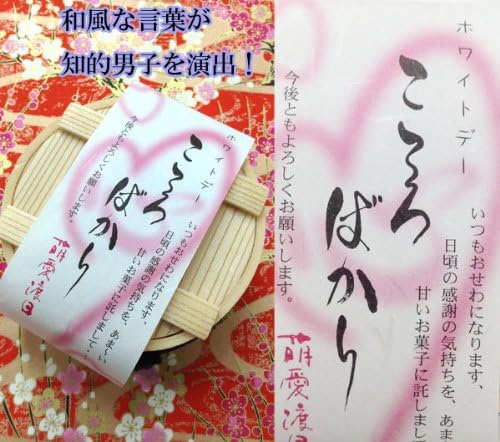 和風な言葉が
知的男子を演出！
ホワイトデー
こころ
ばかり
いつもおせわになります、
日頃の感謝の気持ちを、あま〜い
甘いお菓子に託しまして、
今後ともよろしくお願いします。
萌愛渡日
ホワイトデー
こころ
ばかり
いつもおせわになります、
日頃の感謝の気持ちを、あま
甘いお菓子に託しまし
今後ともよろしくお願いします。
萌愛渡